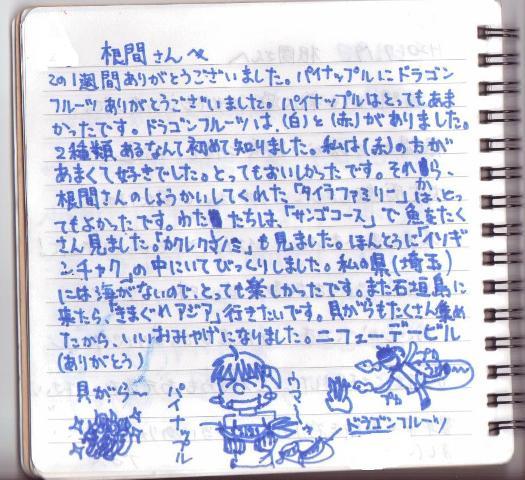 根間さんへ
この1週間ありがとうございました。パイナップルにドラゴン
フルーツありがとうございました。パイナップルはとってもあま
かったです。ドラゴンフルーツは、(白)と(赤)がありました。
2種類あるなんて初めて知りました。私は(赤)の方が
あまくて好きでした。とってもおいしかったです。それから、
根間さんのしょうかいしてくれた「タイラファミリー」かは、とっ
てもよかったです。わたしたちは、「サンゴコース」で魚をたく
さん見ました。「カクレクマノミ」も見ました。ほんとうに「イソギ
ンチャク」の中にいてびっくりしました。私の県(埼玉)
には海がないので、とっても楽しかったです。また石垣島に
来たら「きまぐれアジア」行きたいです。貝がらもたくさん集め
たから、いいおみやげになりました。ニフェーデービル
(ありがとう)
貝がら〜
パイナップル
ウマ〜
ドラゴンフルーツ